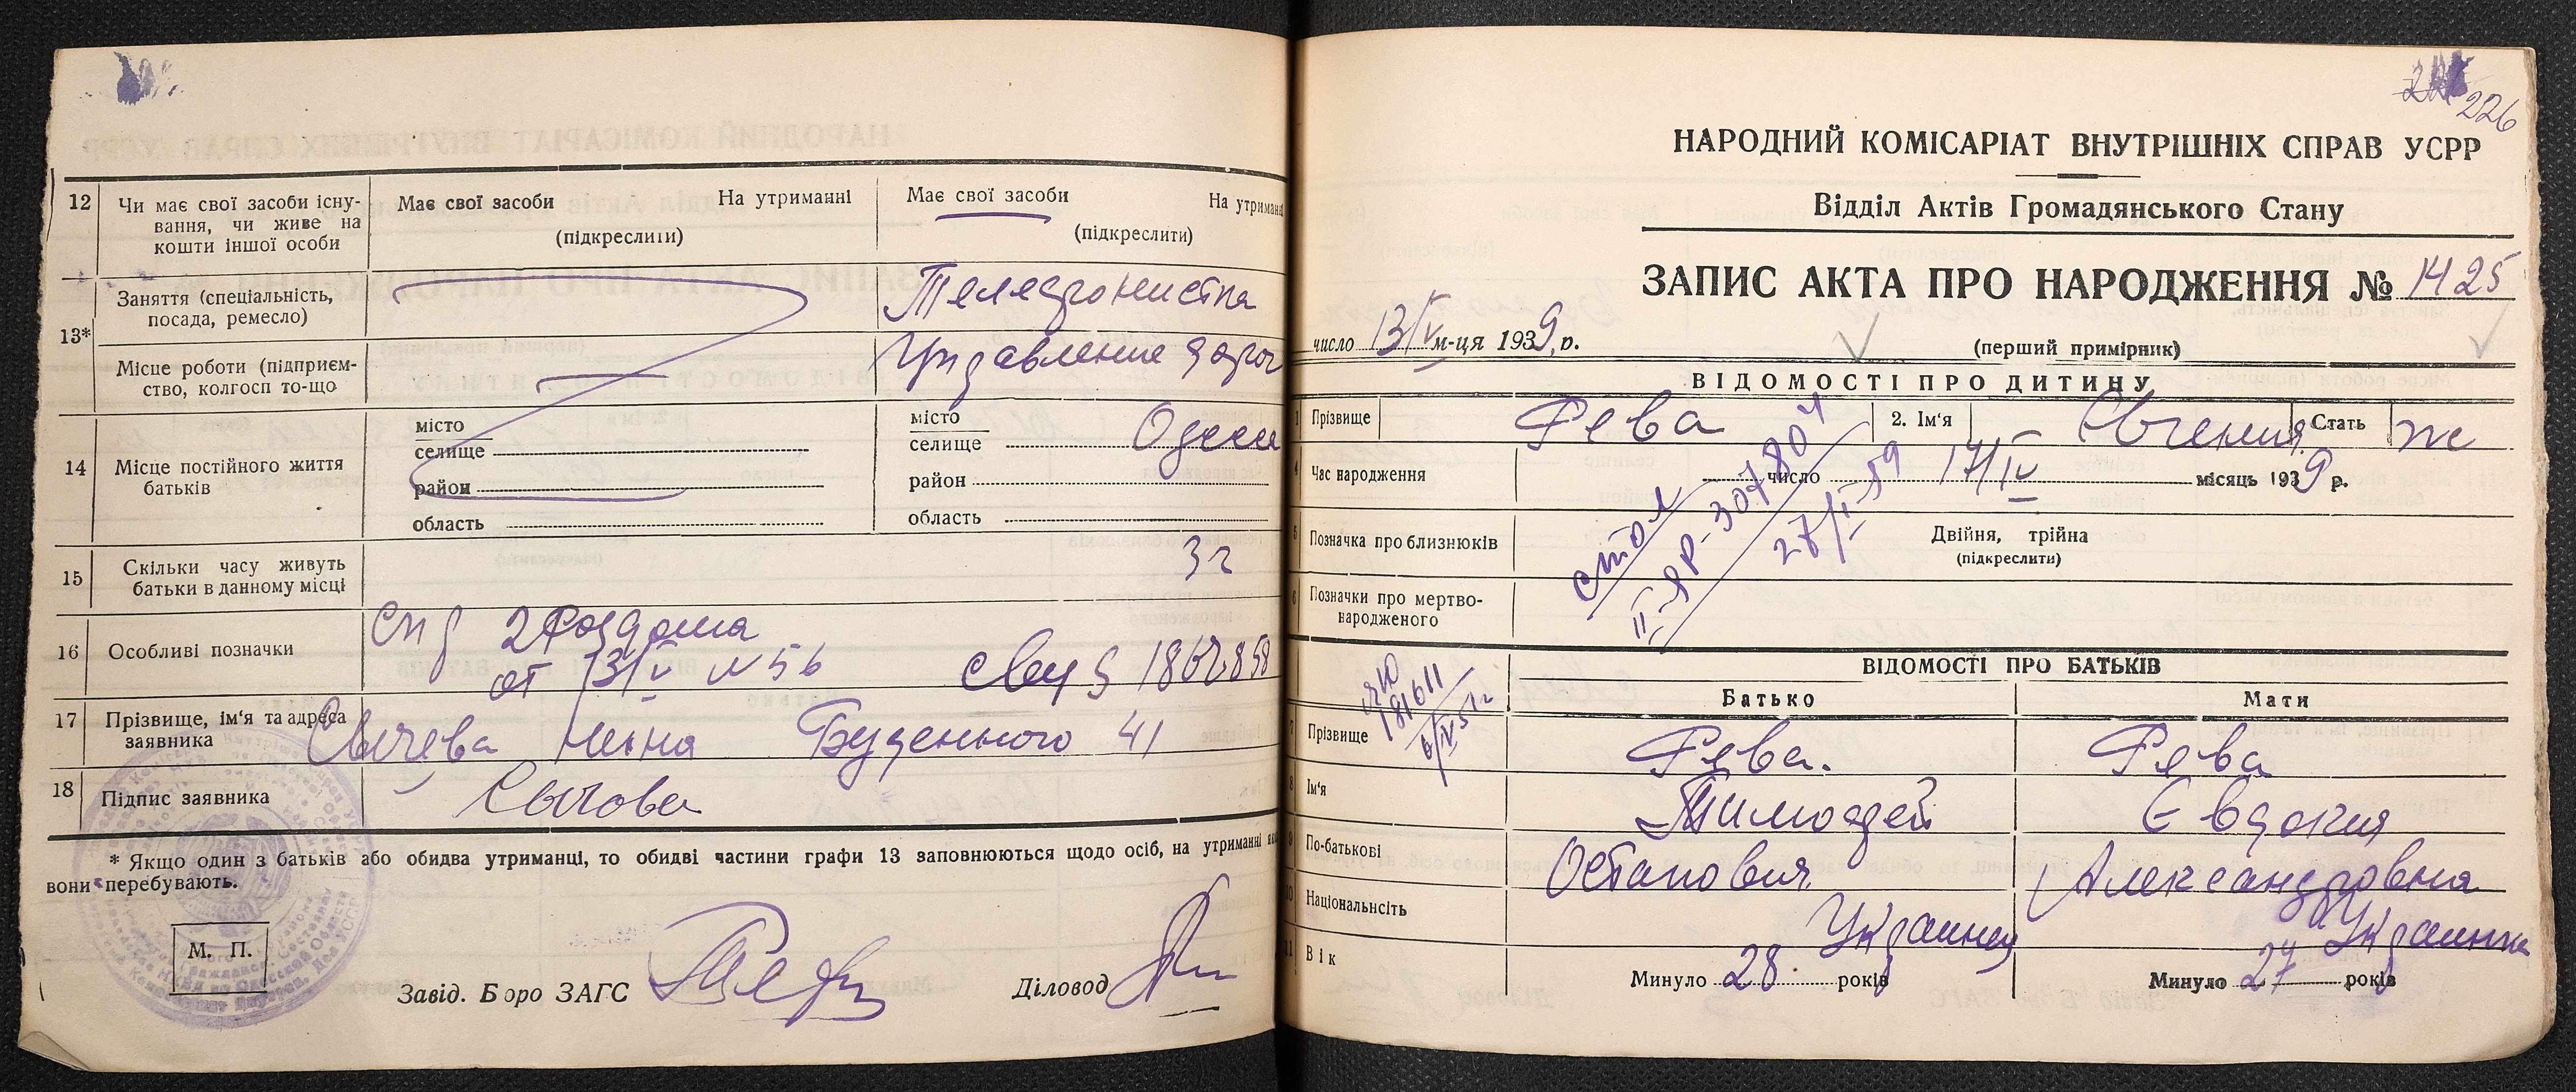 12 Чи має свої засоби існу-
вання, чи живе на
кошти іншої особи
Має свої засоби На утриманні
(підкреслити)
Має свої засоби На утриманн
(підкреслити)
13*
Заняття (спеціальність,
посада, ремесло)
Телефонистка
Місце роботи (підприєм-
ство, колгосп то-що
Управление дорог
14 Місце постійного життя
батьків
місто
селище
район
область
місто
селище Одеса
район
область
15 Скільки часу живуть
батьки в данному місці
3 г
16 Особливі позначки
2 Роддома
от 13/V N 56
17 Прізвище, ім'я та адреса
заявника
Нина Буденного 41
18 Підпис заявника
* Якщо один з батьків або обидва утриманці, то обидві частини графи 13 заповнюються щодо осіб, на утриманні
вони перебувають.
М. П.
Завід. Бюро ЗАГС
Діловод
226
НАРОДНИЙ КОМІСАРІАТ ВНУТРІШНІХ СПРАВ УСРР
Відділ Актів Громадянського Стану
ЗАПИС АКТА ПРО НАРОДЖЕННЯ № 1425
число 13/V м-ця 1939 р.
(перший примірник)
ВІДОМОСТІ ПРО ДИТИНУ
1 Прізвище Рева 2. Ім'я Євгения Стать ж
4 Час народження число 17/IV місяць 1939 р.
стол
II-ЯР-307804
27/II-59
5 Позначка про близнюків
Двійня, трійна
(підкреслити)
6 Позначки про мертво-
народженого
ВІДОМОСТІ ПРО БАТЬКІВ
Батько Мати
181611
7 Прізвище Рева. Рева
8 Ім'я Тимофей Євдокия
9 По-батькові Остапович Александровна
10 Національність Украинец Украинка
11 Вік
Минуло 28 років
Минуло 27 років